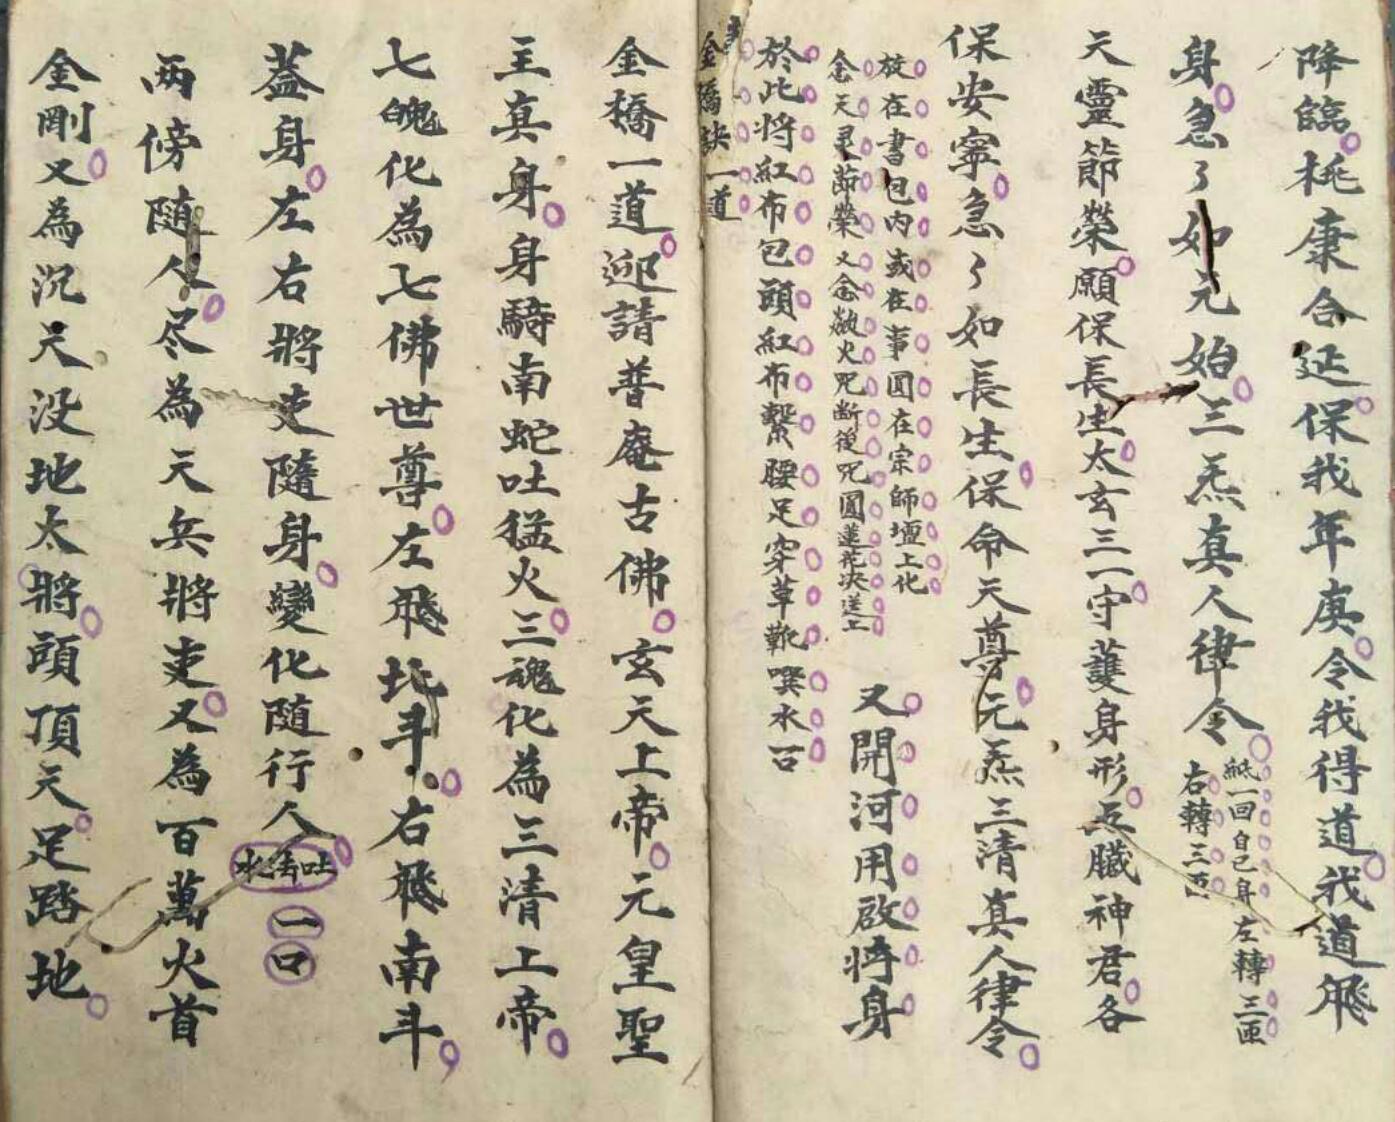 降臨桃康合延保我年庚令我得道我道飛
身急〻如元始三炁真人律令
紙一回自己身左轉三匝
右轉三匝
天靈節榮願保長生太玄三一守護身形五臟神君各
保安寧急〻如長生保命天尊元炁三清真人律令
放在書包内或在事圓在宗師壇上化
念天灵節榮又念敕火咒断後咒圓蓮花决送工
又開河用啟將身
於此将紅布包頭紅布繫腰足穿草靴噀水一口
金橋訣一道
金橋一道迎請普庵古佛玄天上帝元皇聖
主真身身騎南蛇吐猛火三魂化為三清上帝
七魄化為七佛世尊左飛北斗右飛南斗
蓋身左右將吏隨身變化随行人吐清水一口
两傍随人尽為天兵將吏又為百萬火首
金剛又為沉天没地太將頭頂天足踏地